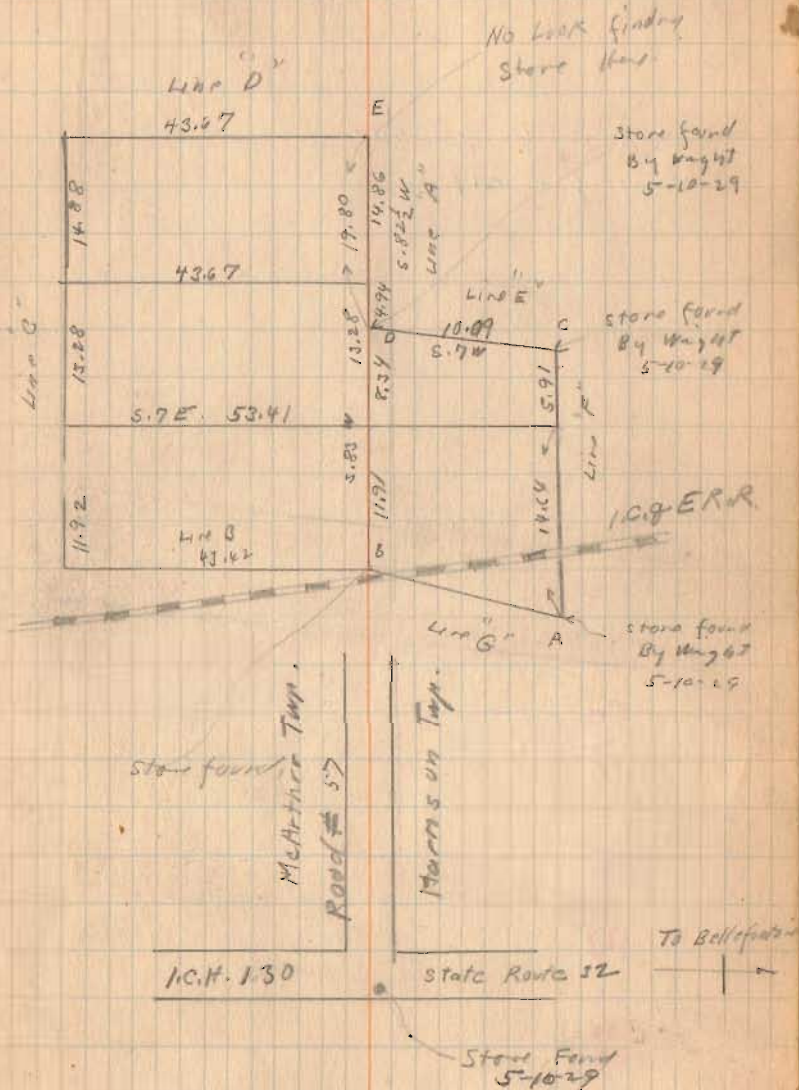 No Luck finding
Stone Here.
Line "D"
43.67
E
Stone found
By Wright
5-10-29
14.88
19.80
14.86
S.82½ W
Line "A"
43.67
Line "E"
4.94
D
10.09
S.7 W
C
Stone found
By Wright
5-10-29
Line "C"
13.28
13.28
8.34
5.91
Line "F"
S.7 E. 53.41
S.83 W
11.92
11.91
14.64
Line B
43.42
B
I.C. & E R.R.
Line "G"
A
Stone found
By Wright
5-10-29
Stone found
McArthur Twp.
Road # 57
Harrison Twp.
To Bellefontaine
I.C.H. 130
State Route 32
Stone Found
5-10-29